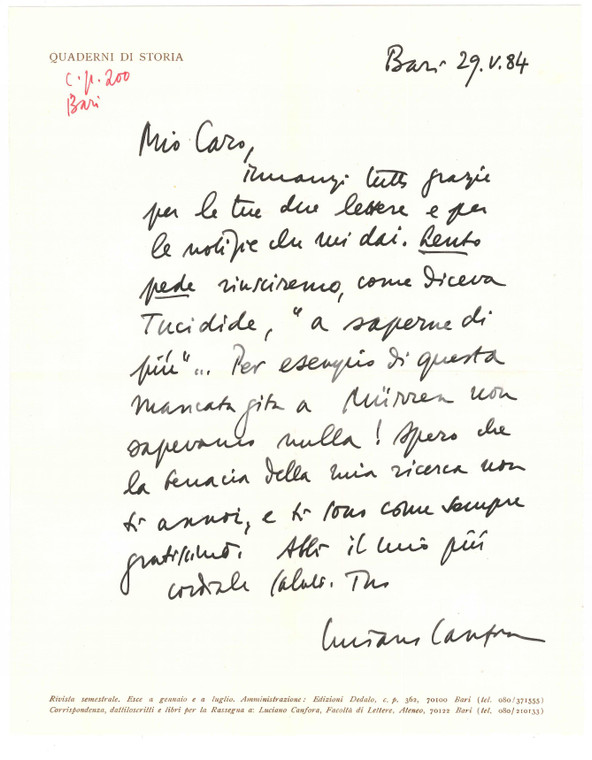 QUADERNI DI STORIA
c.p. 200
Bari
Bari 29.V.84
Mio Caro,
innanzi tutto grazie
per le tue due lettere e per
le notizie che mi dai. Lento
pede riusciremo, come diceva
Tucidide, "a saperne di
più"... Per esempio di questa
mancata gita a Mürren non
sapevamo nulla! Spero che
la tenacia della mia ricerca non
ti annoi, e ti sono come sempre
gratissimo. Abbi il mio più
cordiale saluto. Tuo
Luciano Canfora
Rivista semestrale. Esce a gennaio e a luglio. Amministrazione: Edizioni Dedalo, c. p. 362, 70100 Bari (tel. 080/371555)
Corrispondenza, dattiloscritti e libri per la Rassegna a: Luciano Canfora, Facoltà di Lettere, Ateneo, 70122 Bari (tel. 080/210133)